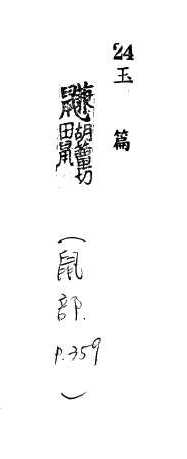 24 玉篇
鼸 胡簟切
田鼠
(鼠部. p.359)